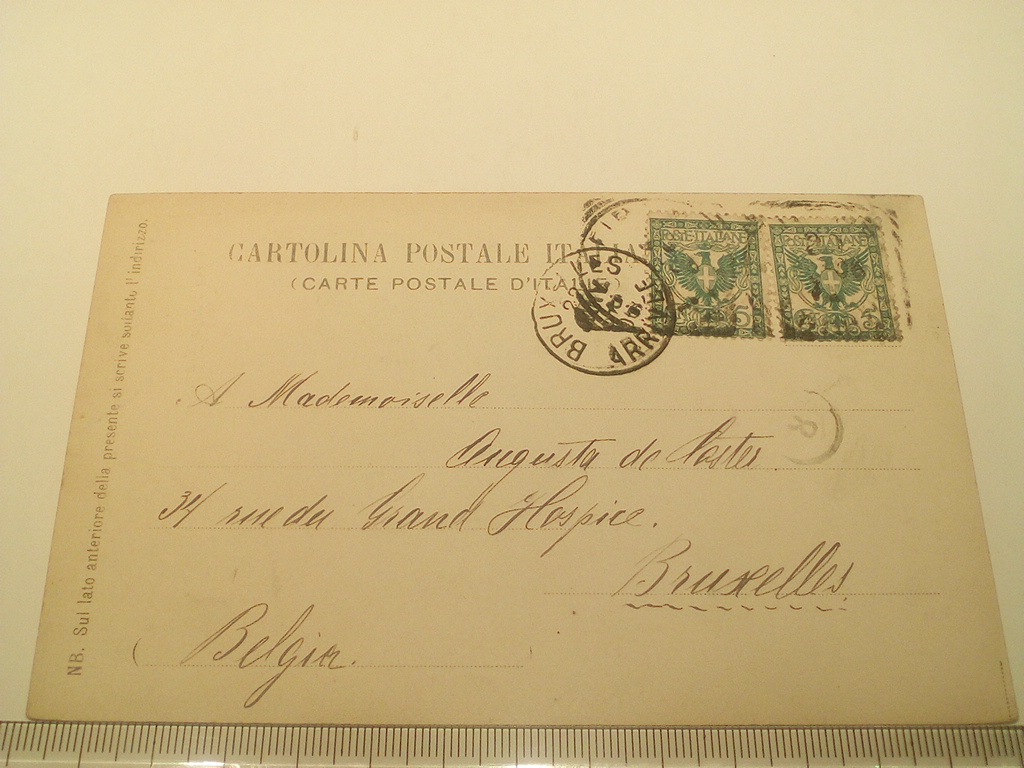 CARTOLINA POSTALE ITALIA
(CARTE POSTALE D'ITALIE)
POSTE ITALIANE
POSTE ITALIANE
BRUXELLES
ARRIVEE
R
A Mademoiselle
Augusta de
34 rue du Grand Hospice.
Bruxelles
Belgia.
NB. Sul lato anteriore della presente si scrive soltanto l'indirizzo.